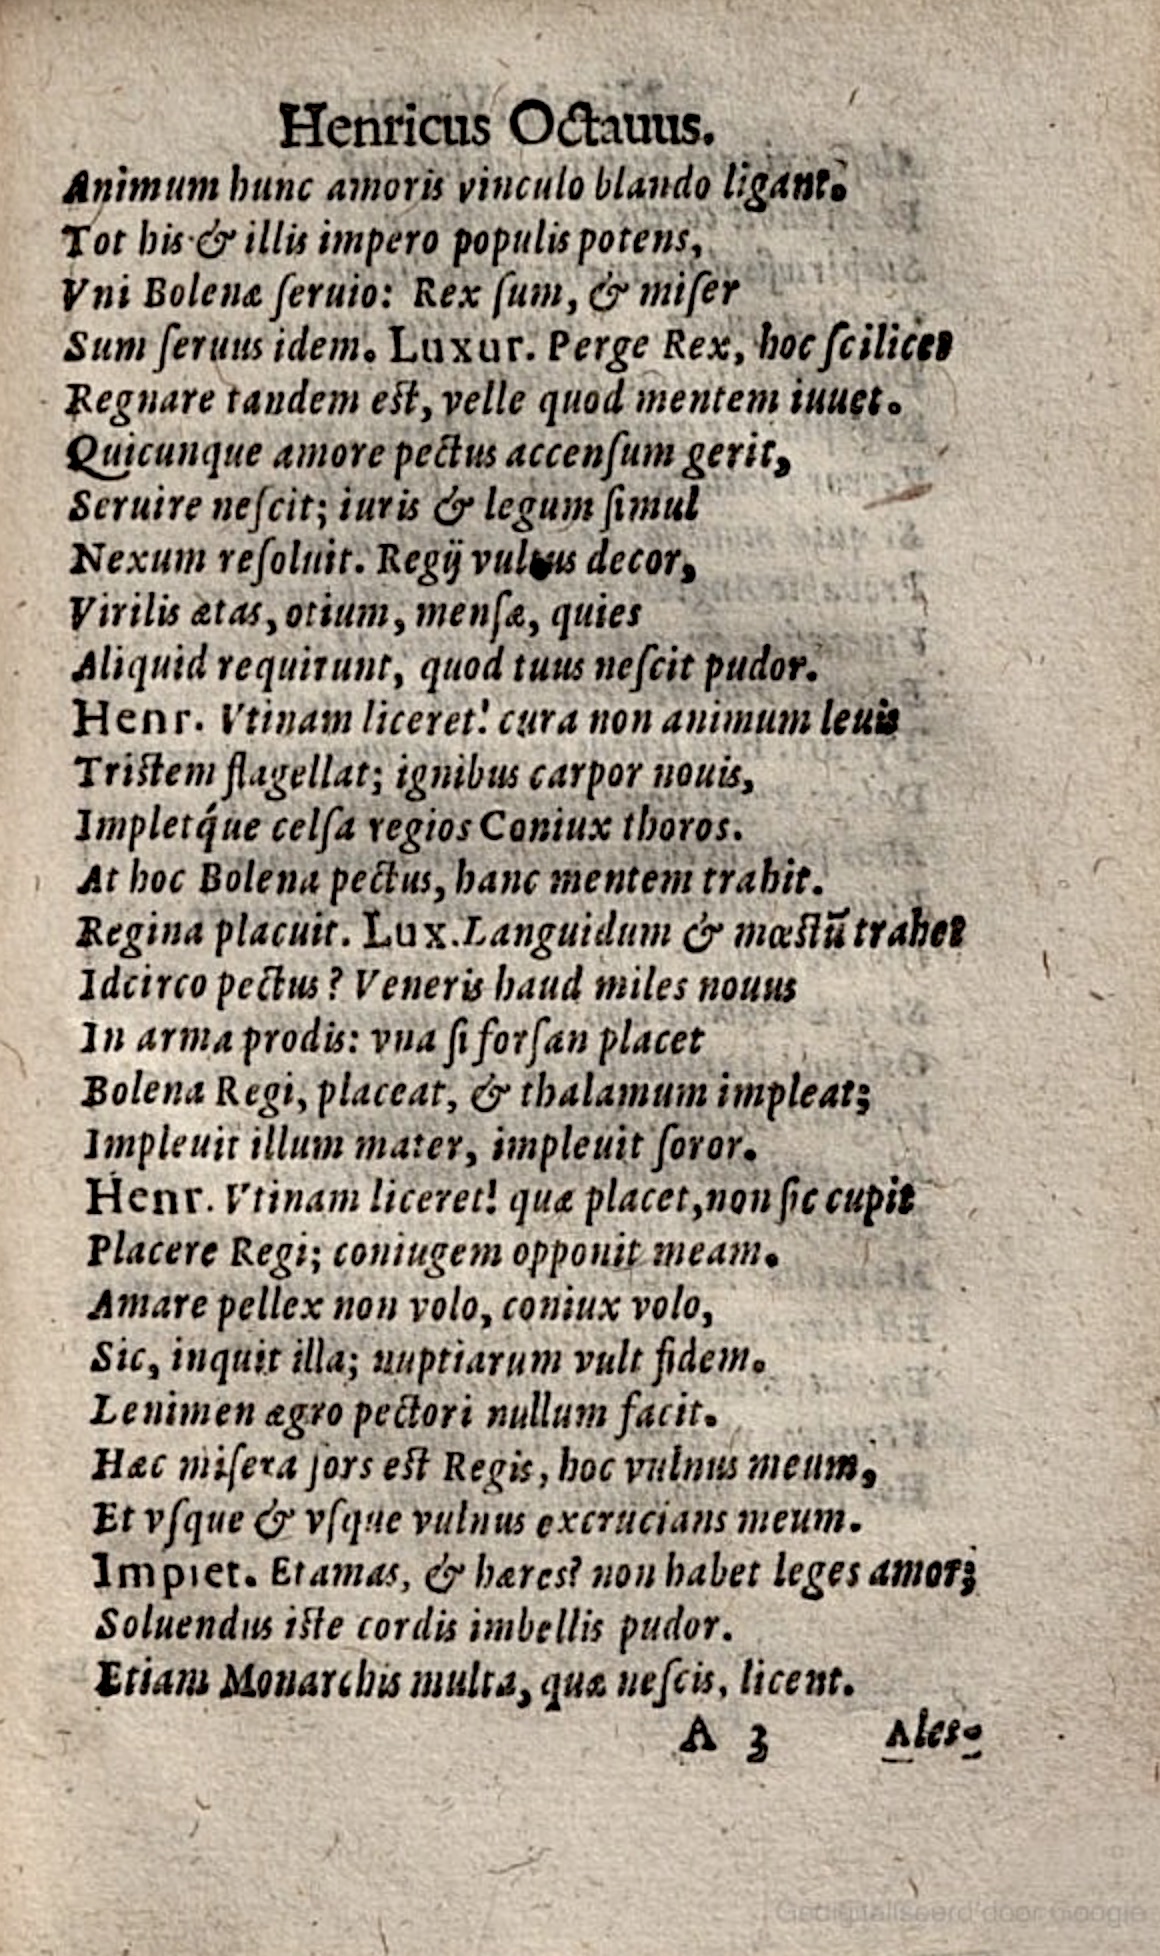 Henricus Octauus.
Animum hunc amoris vinculo blando ligant.
Tot his & illis impero populis potens,
Vni Bolenæ ſeruio: Rex ſum, & miſer
Sum ſeruus idem. Luxur. Perge Rex, hoc ſcilicet
Regnare tandem eſt, velle quod mentem iuuet.
Quicunque amore pectus accenſum gerit,
Seruire neſcit; iuris & legum ſimul
Nexum reſoluit. Regij vultus decor,
Virilis ætas, otium, menſæ, quies
Aliquid requirunt, quod tuus neſcit pudor.
Henr. Vtinam liceret! cura non animum leuis
Triſtem flagellat; ignibus carpor nouis,
Impletq́ue celſa regios Coniux thoros.
At hoc Bolena pectus, hanc mentem trahit.
Regina placuit. Lux. Languidum & mœſtū trahet
Idcirco pectus? Veneris haud miles nouus
In arma prodis: vna ſi forſan placet
Bolena Regi, placeat, & thalamum impleat;
Impleuit illum mater, impleuit ſoror.
Henr. Vtinam liceret! quæ placet, non ſic cupit
Placere Regi; coniugem opponit meam.
Amare pellex non volo, coniux volo,
Sic, inquit illa; nuptiarum vult fidem.
Lenimen ægro pectori nullum facit.
Hæc miſera ſors eſt Regis, hoc vulnus meum,
Et vſque & vſque vulnus excrucians meum.
Impiet. Et amas, & hæres? non habet leges amor;
Soluendus iſte cordis imbellis pudor.
Etiam Monarchis multa, quæ neſcis, licent.
A 3 Ales-
Gedigitaliseerd door Google